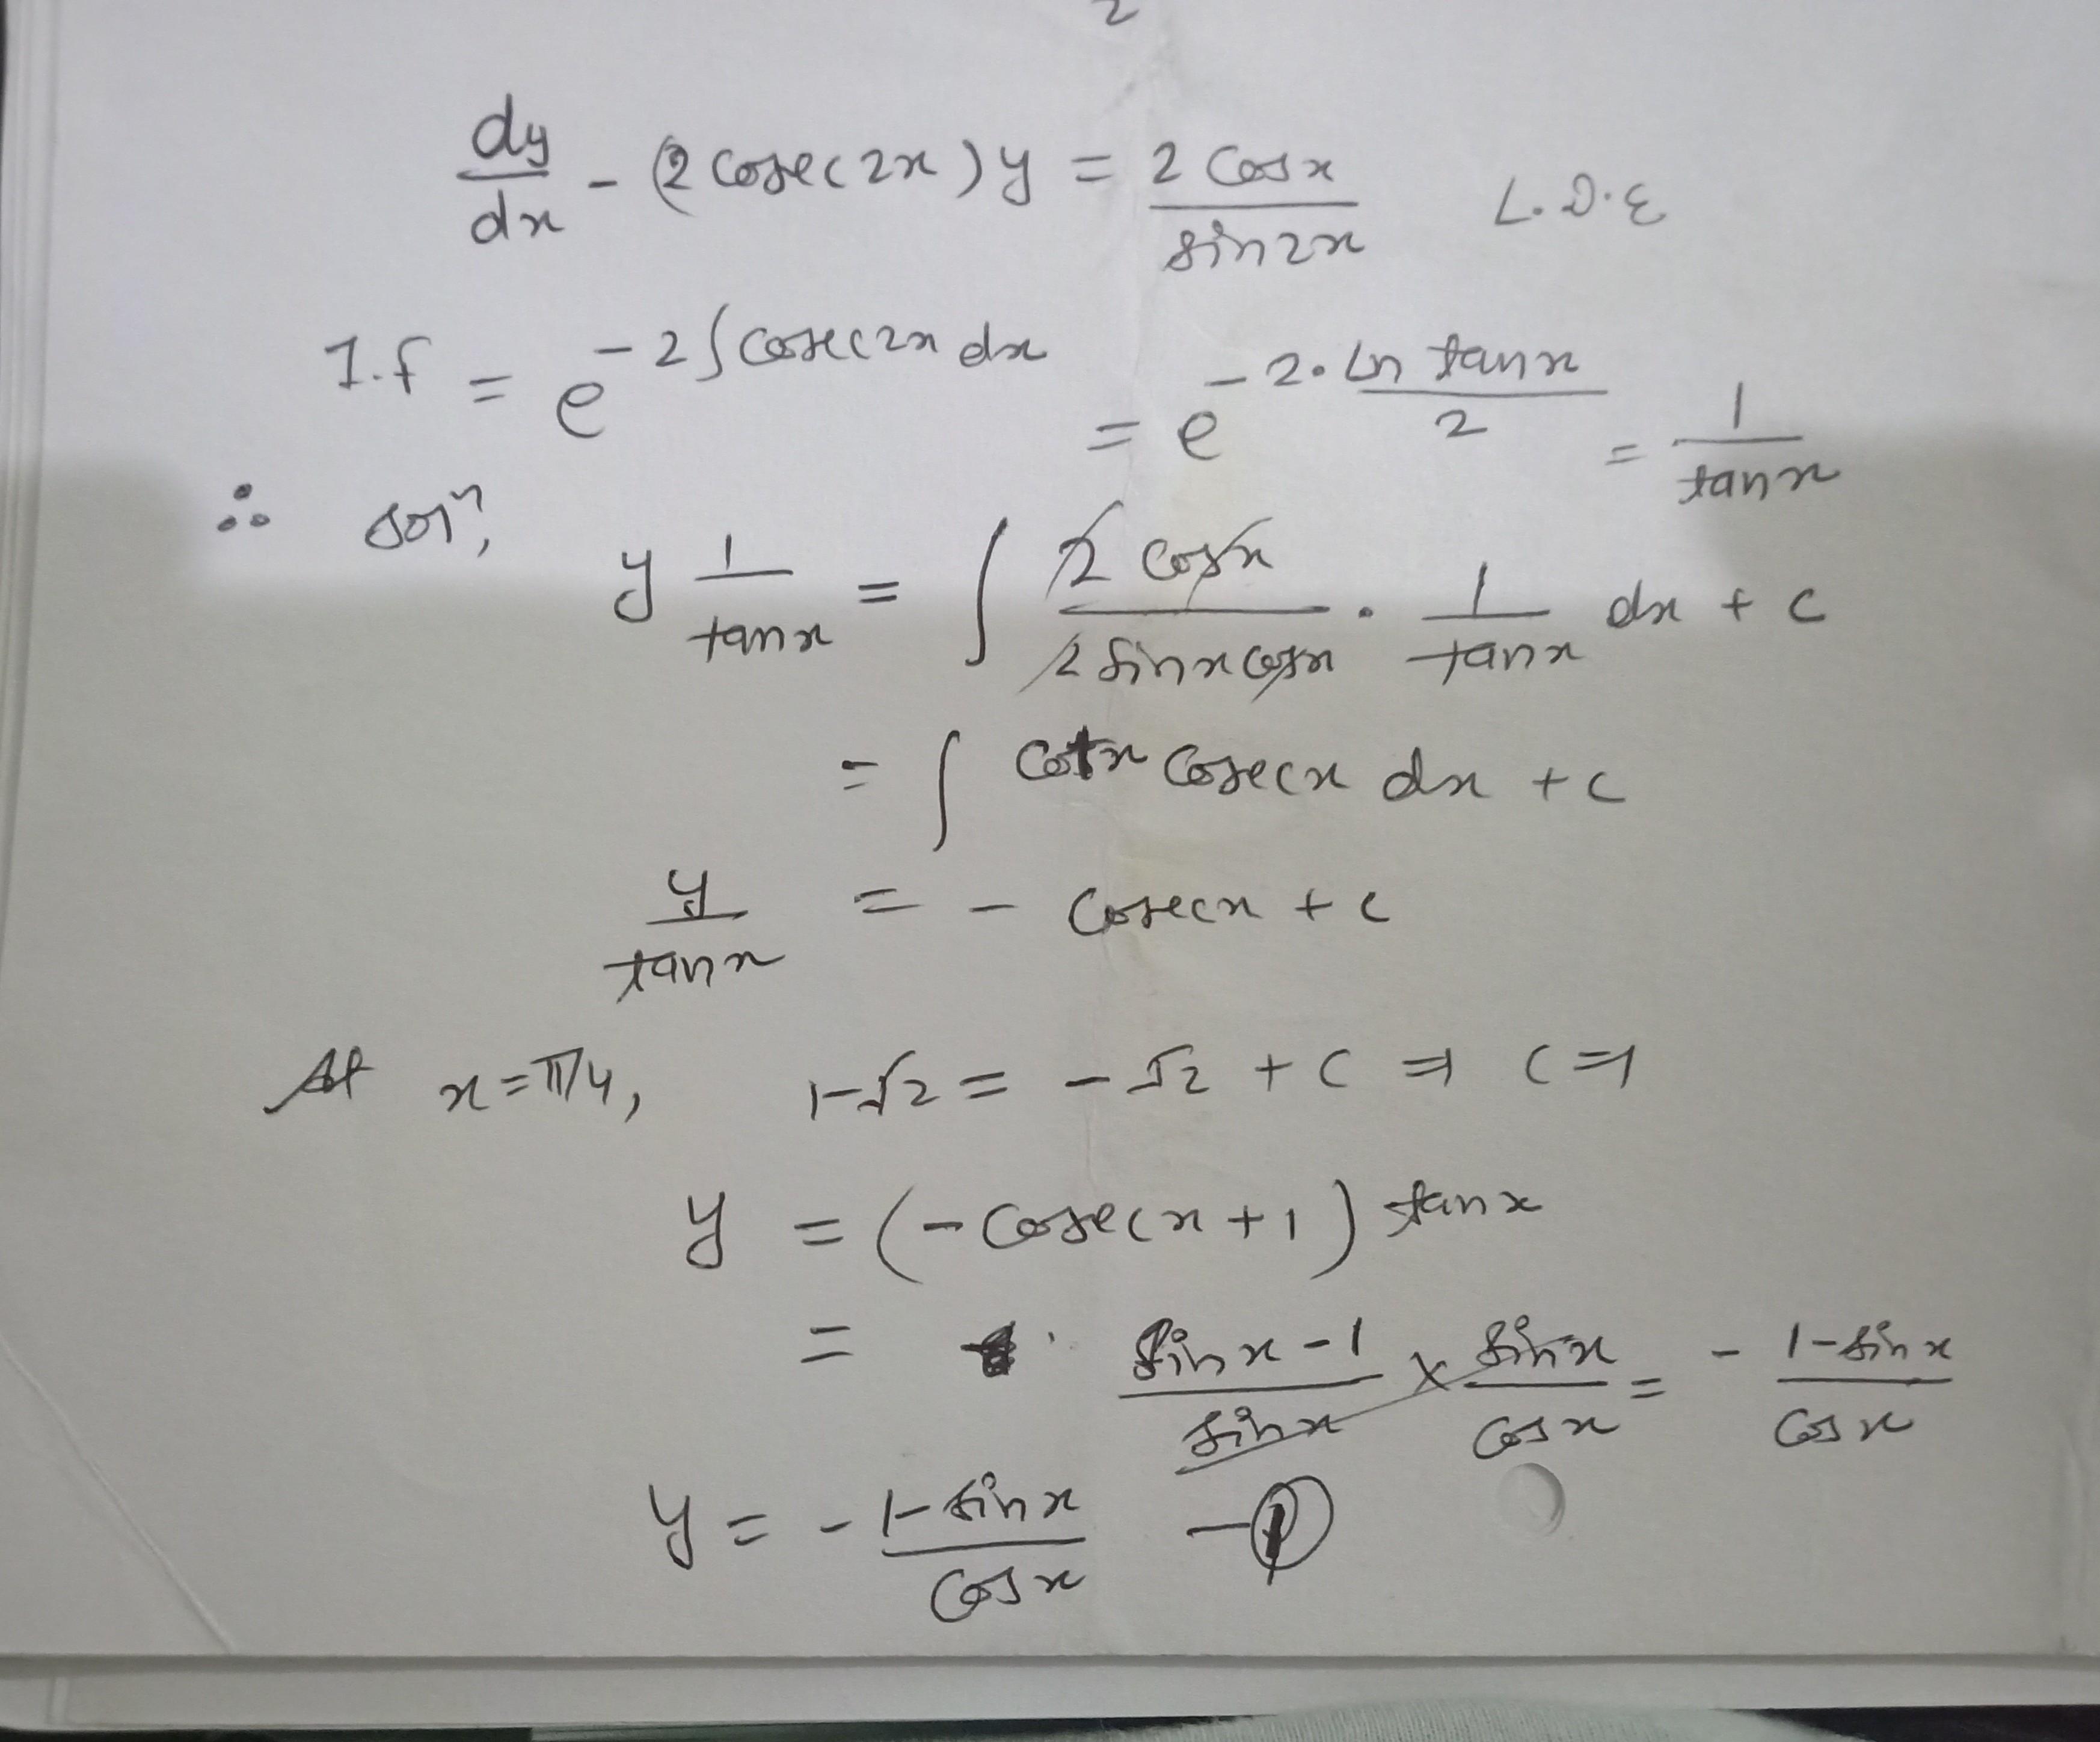 2
dy/dx - (2 cosec 2x) y = 2 cos x / sin 2x   L.D.E
I.f = e^(-2∫cosec 2x dx) = e^(-2. ln tan x / 2) = 1/tan x
∴ solⁿ, y 1/tan x = ∫ 2 cos x / 2 sin x cos x . 1/tan x dx + c
= ∫ cot x cosec x dx + c
y/tan x = - cosec x + c
At x = π/4, 1-√2 = -√2 + c ⇒ c=1
y = (- cosec x + 1) tan x
= sin x - 1 / sin x × sin x / cos x = - 1 - sin x / cos x
y = - 1 - sin x / cos x - ①